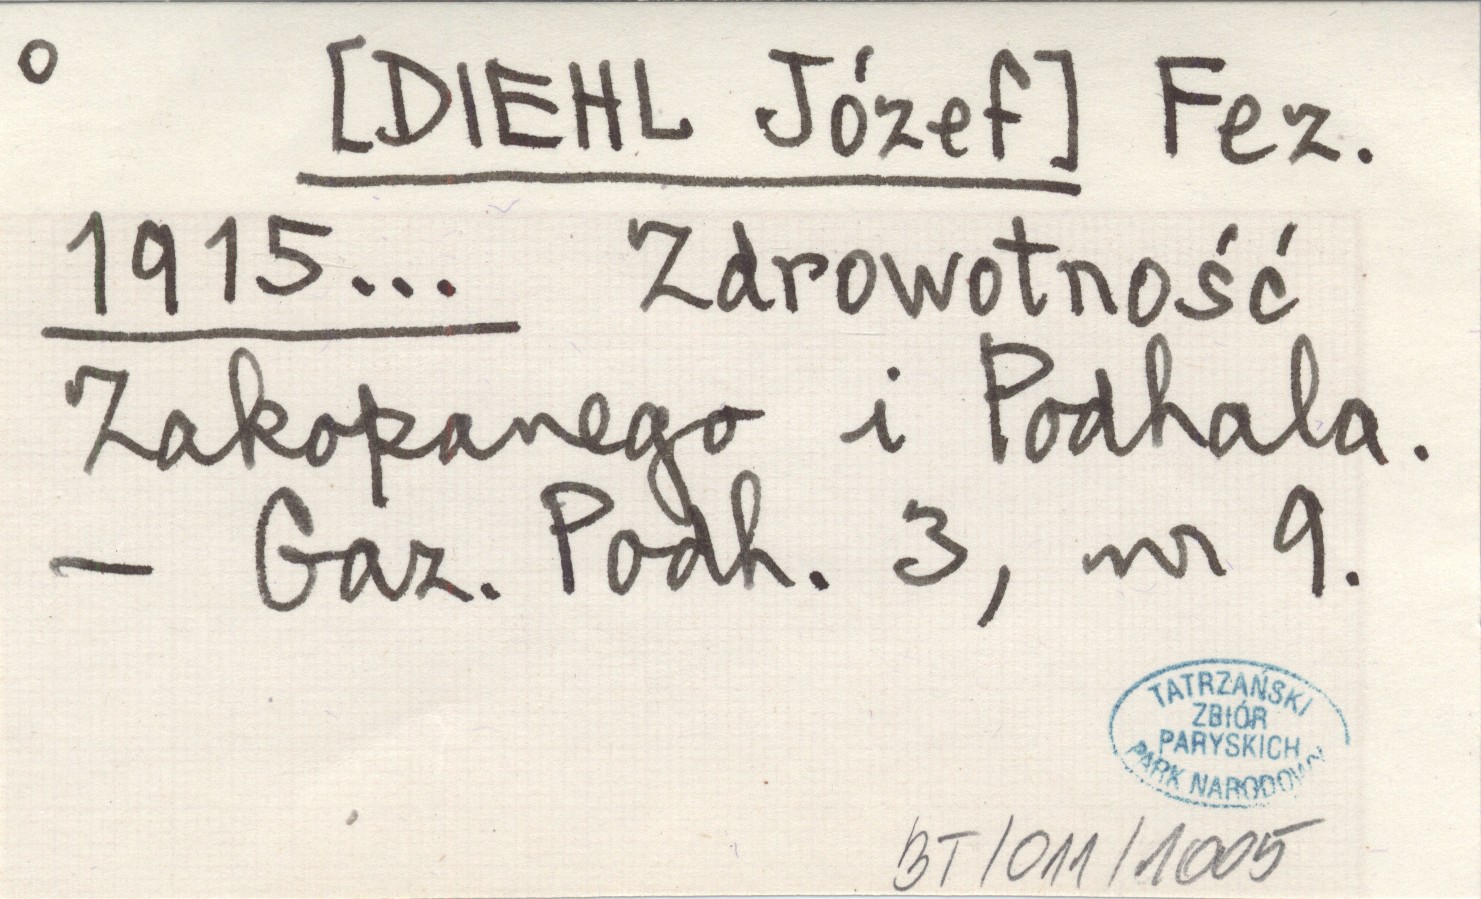 o [DIEHL Józef] Fez.
1915... Zdrowotność
Zakopanego i Podhala.
— Gaz. Podh. 3, nr 9.
TATRZAŃSKI
ZBIÓR
PARYSKICH
PARK NARODOWY
BT/011/1005